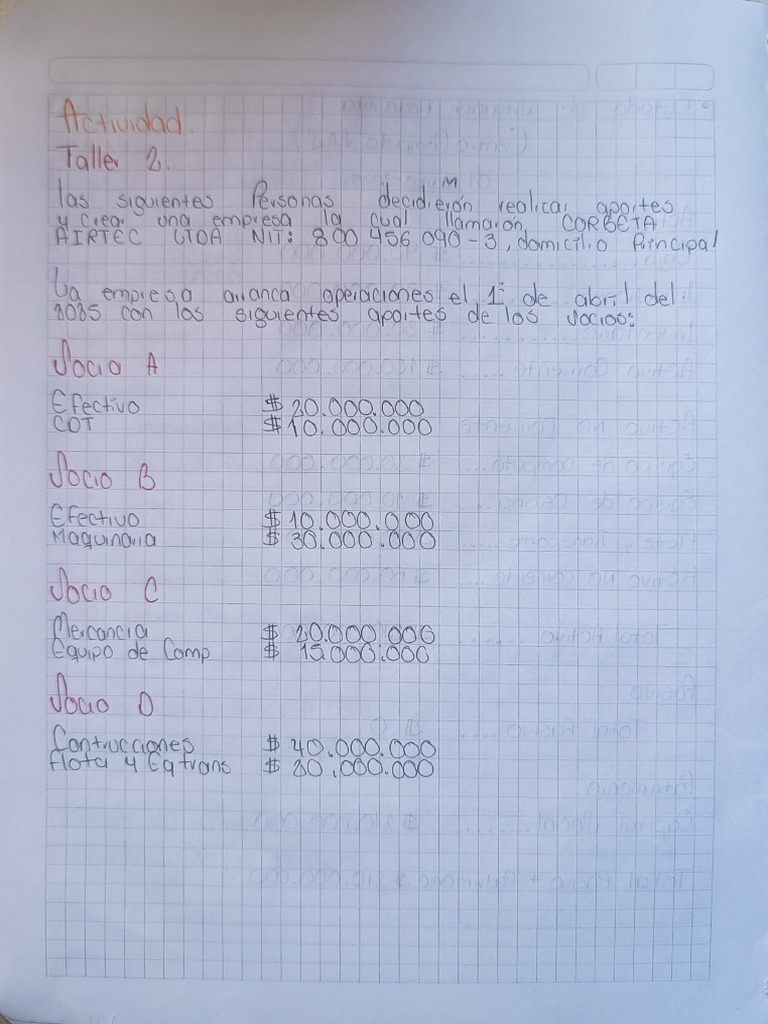 Actividad.
Taller 2.
M
las siguientes Personas decidierón realizar aportes
y crear una empresa la cual llamarón, CORBETA
AIRTEC LTDA NIT: 800 456 090-3, domicilio Principal
La empresa arranca operaciones el 1° de abril del
2025 con los siguientes aportes de los socios:
Socio A
Efectivo $ 20.000.000
COT $ 10.000.000
Socio B
Efectivo $ 10.000.000
Maquinaria $ 30.000.000
Socio C
Mercancia $ 20.000.000
Equipo de Comp $ 15.000.000
Socio D
Contrucciones $ 40.000.000
flota y Eq trans $ 80.000.000